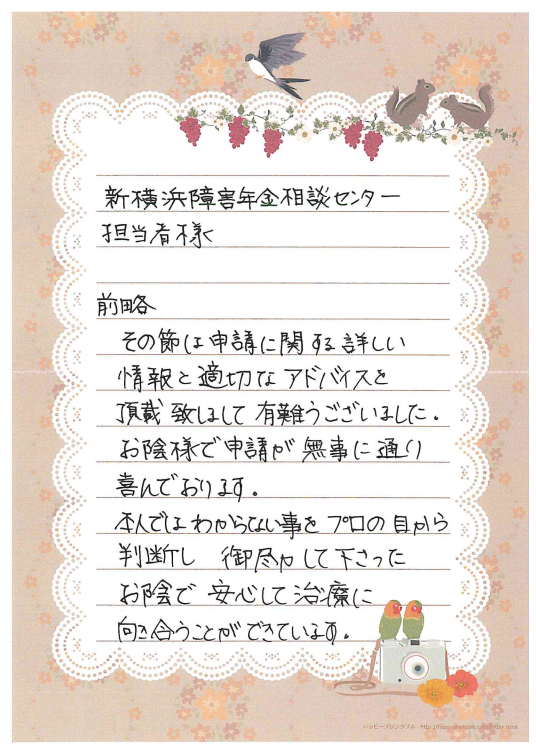 新横浜障害年金相談センター
担当者様
前略
その節は申請に関する詳しい
情報と適切なアドバイスを
頂戴致しまして有難うございました。
お陰様で申請が無事に通り
喜んでおります。
本人ではわからない事をプロの目から
判断し 御尽力して下さった
お陰で安心して治療に
向き合うことができています。
ハッピープリンタブル